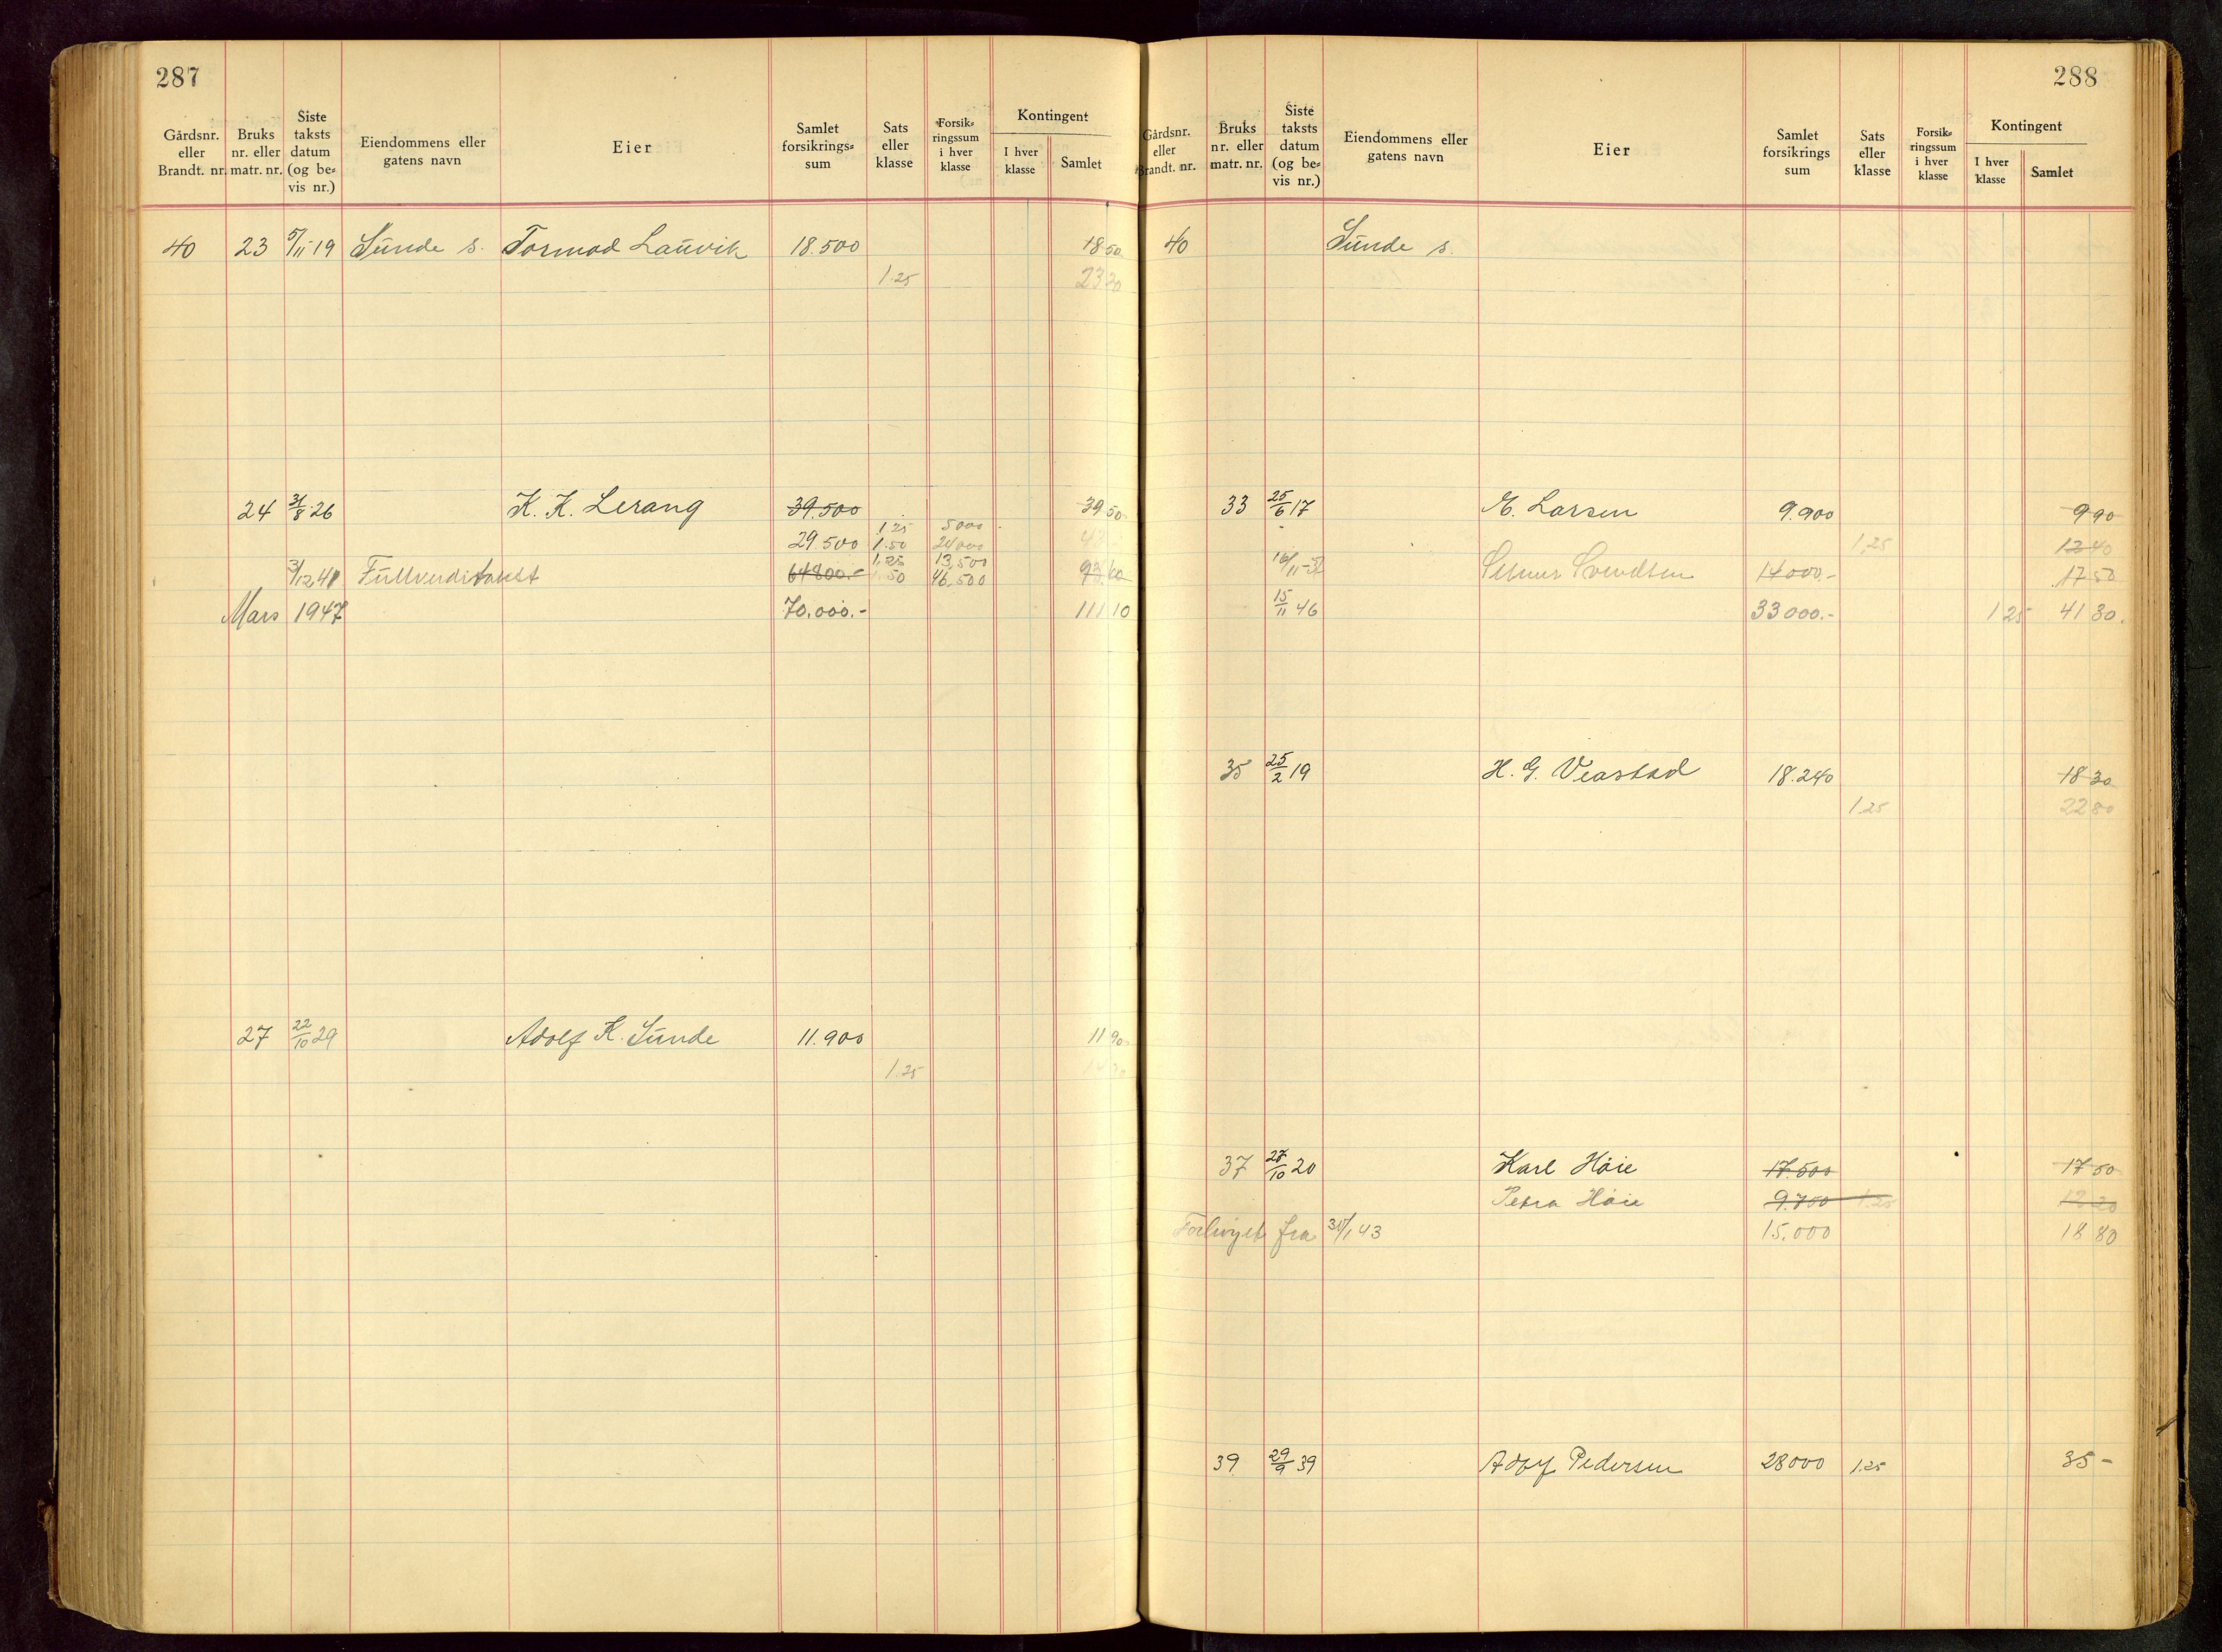 287
Gårdsnr. eller Brandt. nr. Bruks nr. eller matr. nr. Siste taksts datum (og be= vis nr.) Eiendommens eller gatens navn Eier Samlet forsikrings= sum Sats eller klasse Forsik= ringssum i hver klasse Kontingent I hver klasse Samlet
40 23 5/11 19 Sunde s. Tormod Lauvik 18.500 18 50
1.25 23 20
24 31/8 26 K. K. Lerang 39.500 39 50
1,25 5000
29.500 1.50 24000
1,25 13,500
3/12 41 Fullverditakst 64800.- 1.50 46,500 93 60
Mars 1947 70.000.- 111 10
27 22/10 29 Adolf K. Sunde 11.900 11 90
1.25
288
Gårdsnr. eller Brandt. nr. Bruks nr. eller matr. nr. Siste taksts datum (og be= vis nr.) Eiendommens eller gatens navn Eier Samlet forsikrings sum Sats eller klasse Forsik= ringssum i hver klasse Kontingent I hver klasse Samlet
40 Sunde s.
33 25/6 17 E. Larsen 9.900 9 90
1,25 12 40
16/11 Svendsen 14000.- 17 50
15/11 46 33000.- 1 25 41 30.
35 25/2 19 H. G. Veastad 18.240 18 30
1.25 22 80
37 27/10 20 Karl Høie 17.500 17 50
Petra Høie 9.750 1.25 12 20
Forhøyet fra 1/43 15,000 18 80
39 29/9 39 Adolf Pedersen 28000 1.25 35 -